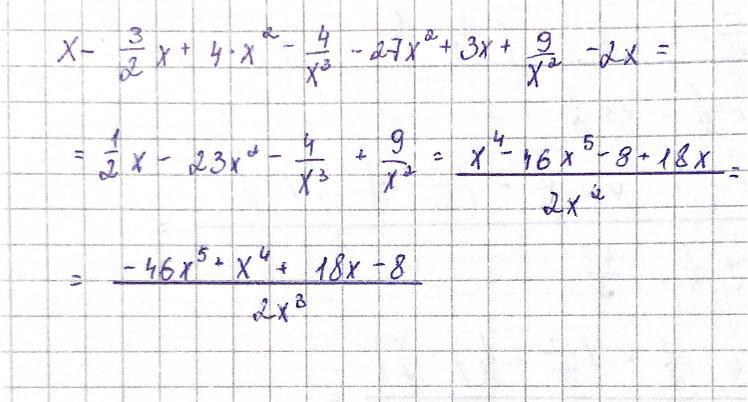 x - 3/2 x + 4·x² - 4/x³ - 27x² + 3x + 9/x² - 2x =
= 1/2 x - 23x² - 4/x³ + 9/x² = (x⁴ - 46x⁵ - 8 + 18x)/(2x²) =
= (-46x⁵ + x⁴ + 18x - 8)/(2x³)